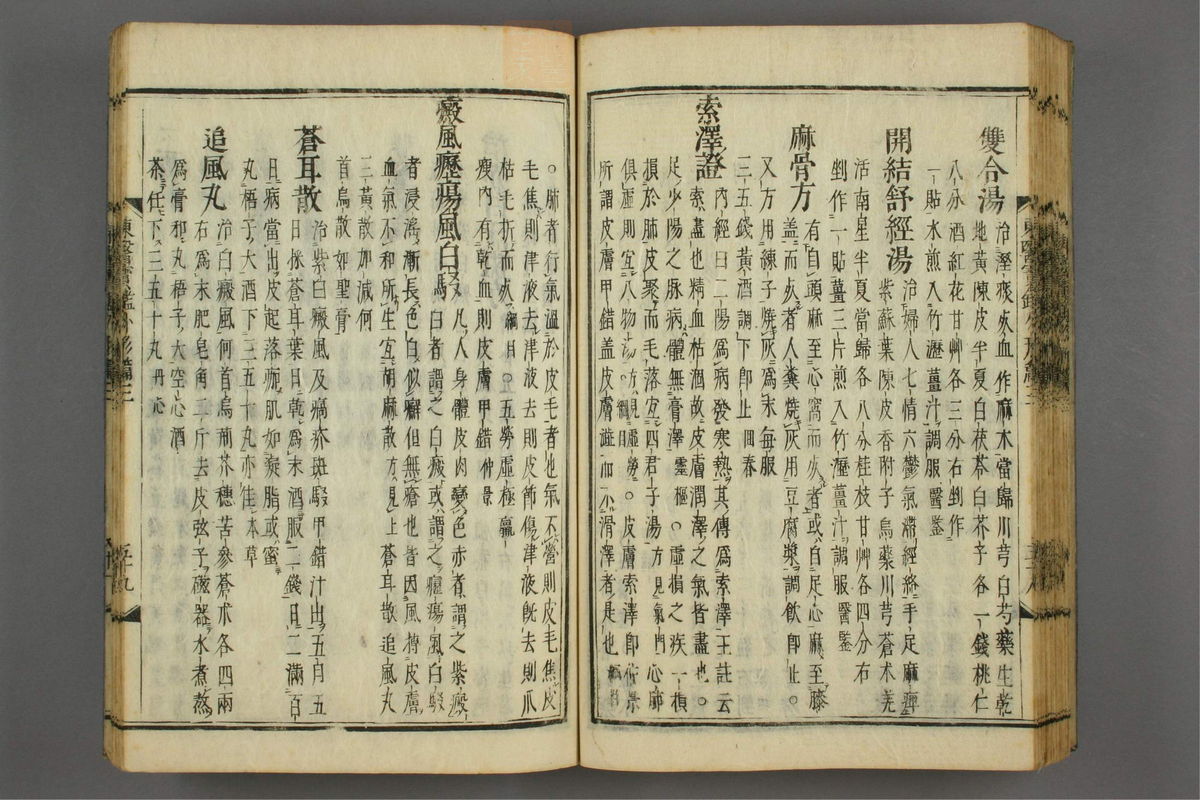 雙合湯 治溼痰死血作麻木當歸川芎白芍藥生乾
地黃陳皮半夏白茯苓白芥子各一錢桃仁
八分酒紅花甘艸各三分右剉作
一貼水煎入竹瀝薑汁調服醫鑑
開結舒經湯 治婦人七情六鬱氣滯經絡手足麻痺
紫蘇葉陳皮香附子烏藥川芎蒼朮羌
活南星半夏當歸各八分桂枝甘艸各四分右
剉作一貼薑三片煎入竹瀝薑汁調服醫鑑
麻骨方 有自頭麻至心窩而死者或自足心麻至膝
盖而死者人糞燒灰用豆腐漿調飮卽止○
又方用練子燒灰爲末每服
三五錢黃酒調下卽止回春
索澤證 內經曰二陽爲病發寒熱其傳爲索澤王註云
索盡也精血枯涸故皮膚潤澤之氣皆盡也○
足少陽之脉病體無膏澤靈樞○虛損之疾一損
損於肺皮聚而毛落宜四君子湯方見氣門心肺
俱虛則宜八物湯方見虛勞綱目○皮膚索澤卽仲景
所謂皮膚甲錯盖皮膚澁而不滑澤者是也綱目
○肺者行氣溫於皮毛者也氣不營則皮毛焦皮
毛焦則津液去津液去則皮節傷津液旣去則爪
枯毛折而死綱目○五勞虛極羸
瘦內有乾血則皮膚甲錯仲景
癜風癧瘍風白駁 凡人身體皮肉變色赤者謂之紫癜
白者謂之白癜或謂之癧瘍風白駁
者浸淫漸長色白似癬但無瘡也皆因風搏皮膚
血氣不和所生宜胡麻散方見上蒼耳散追風丸
三黃散加減何
首烏散如聖膏
蒼耳散 治紫白癜風及癘疥斑駁甲錯汁出五月五
日採蒼耳葉日乾爲末酒服二錢日二滿百
日病當出皮起落咃肌如凝脂或蜜
丸梧子大酒下三五十丸亦佳本草
追風丸 治白癜風何首烏荊芥穗苦參蒼朮各四兩
右爲末肥皂角三斤去皮弦子磁器水煮熬
爲膏和丸梧子大空心酒
茶任下三五十丸丹心
東醫寶鑑外形篇三
五十九